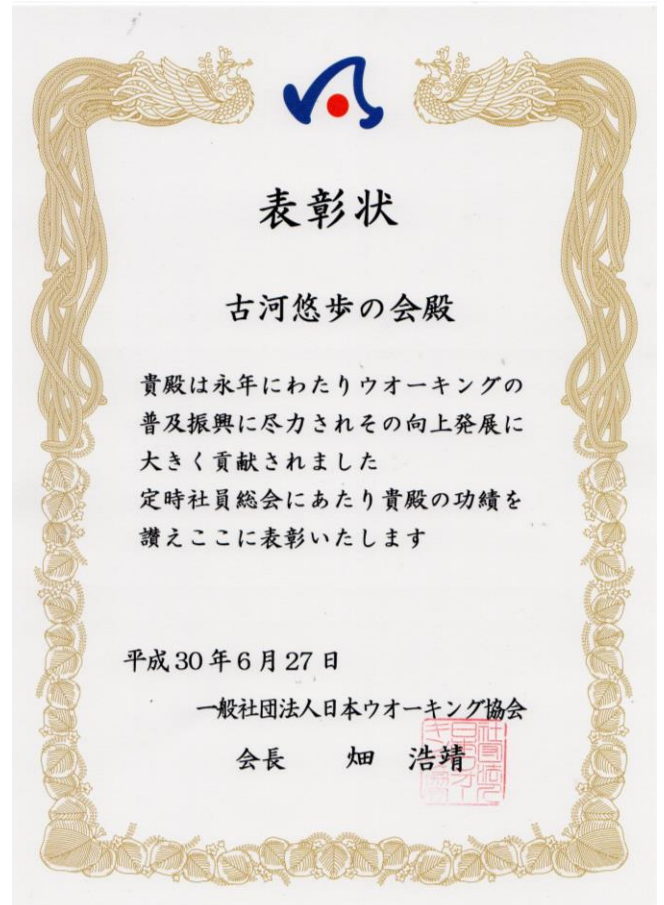 表彰状
古河悠歩の会殿
貴殿は永年にわたりウオーキングの
普及振興に尽力されその向上発展に
大きく貢献されました
定時社員総会にあたり貴殿の功績を
讃えここに表彰いたします
平成30年6月27日
一般社団法人日本ウオーキング協会
会長 畑 浩靖